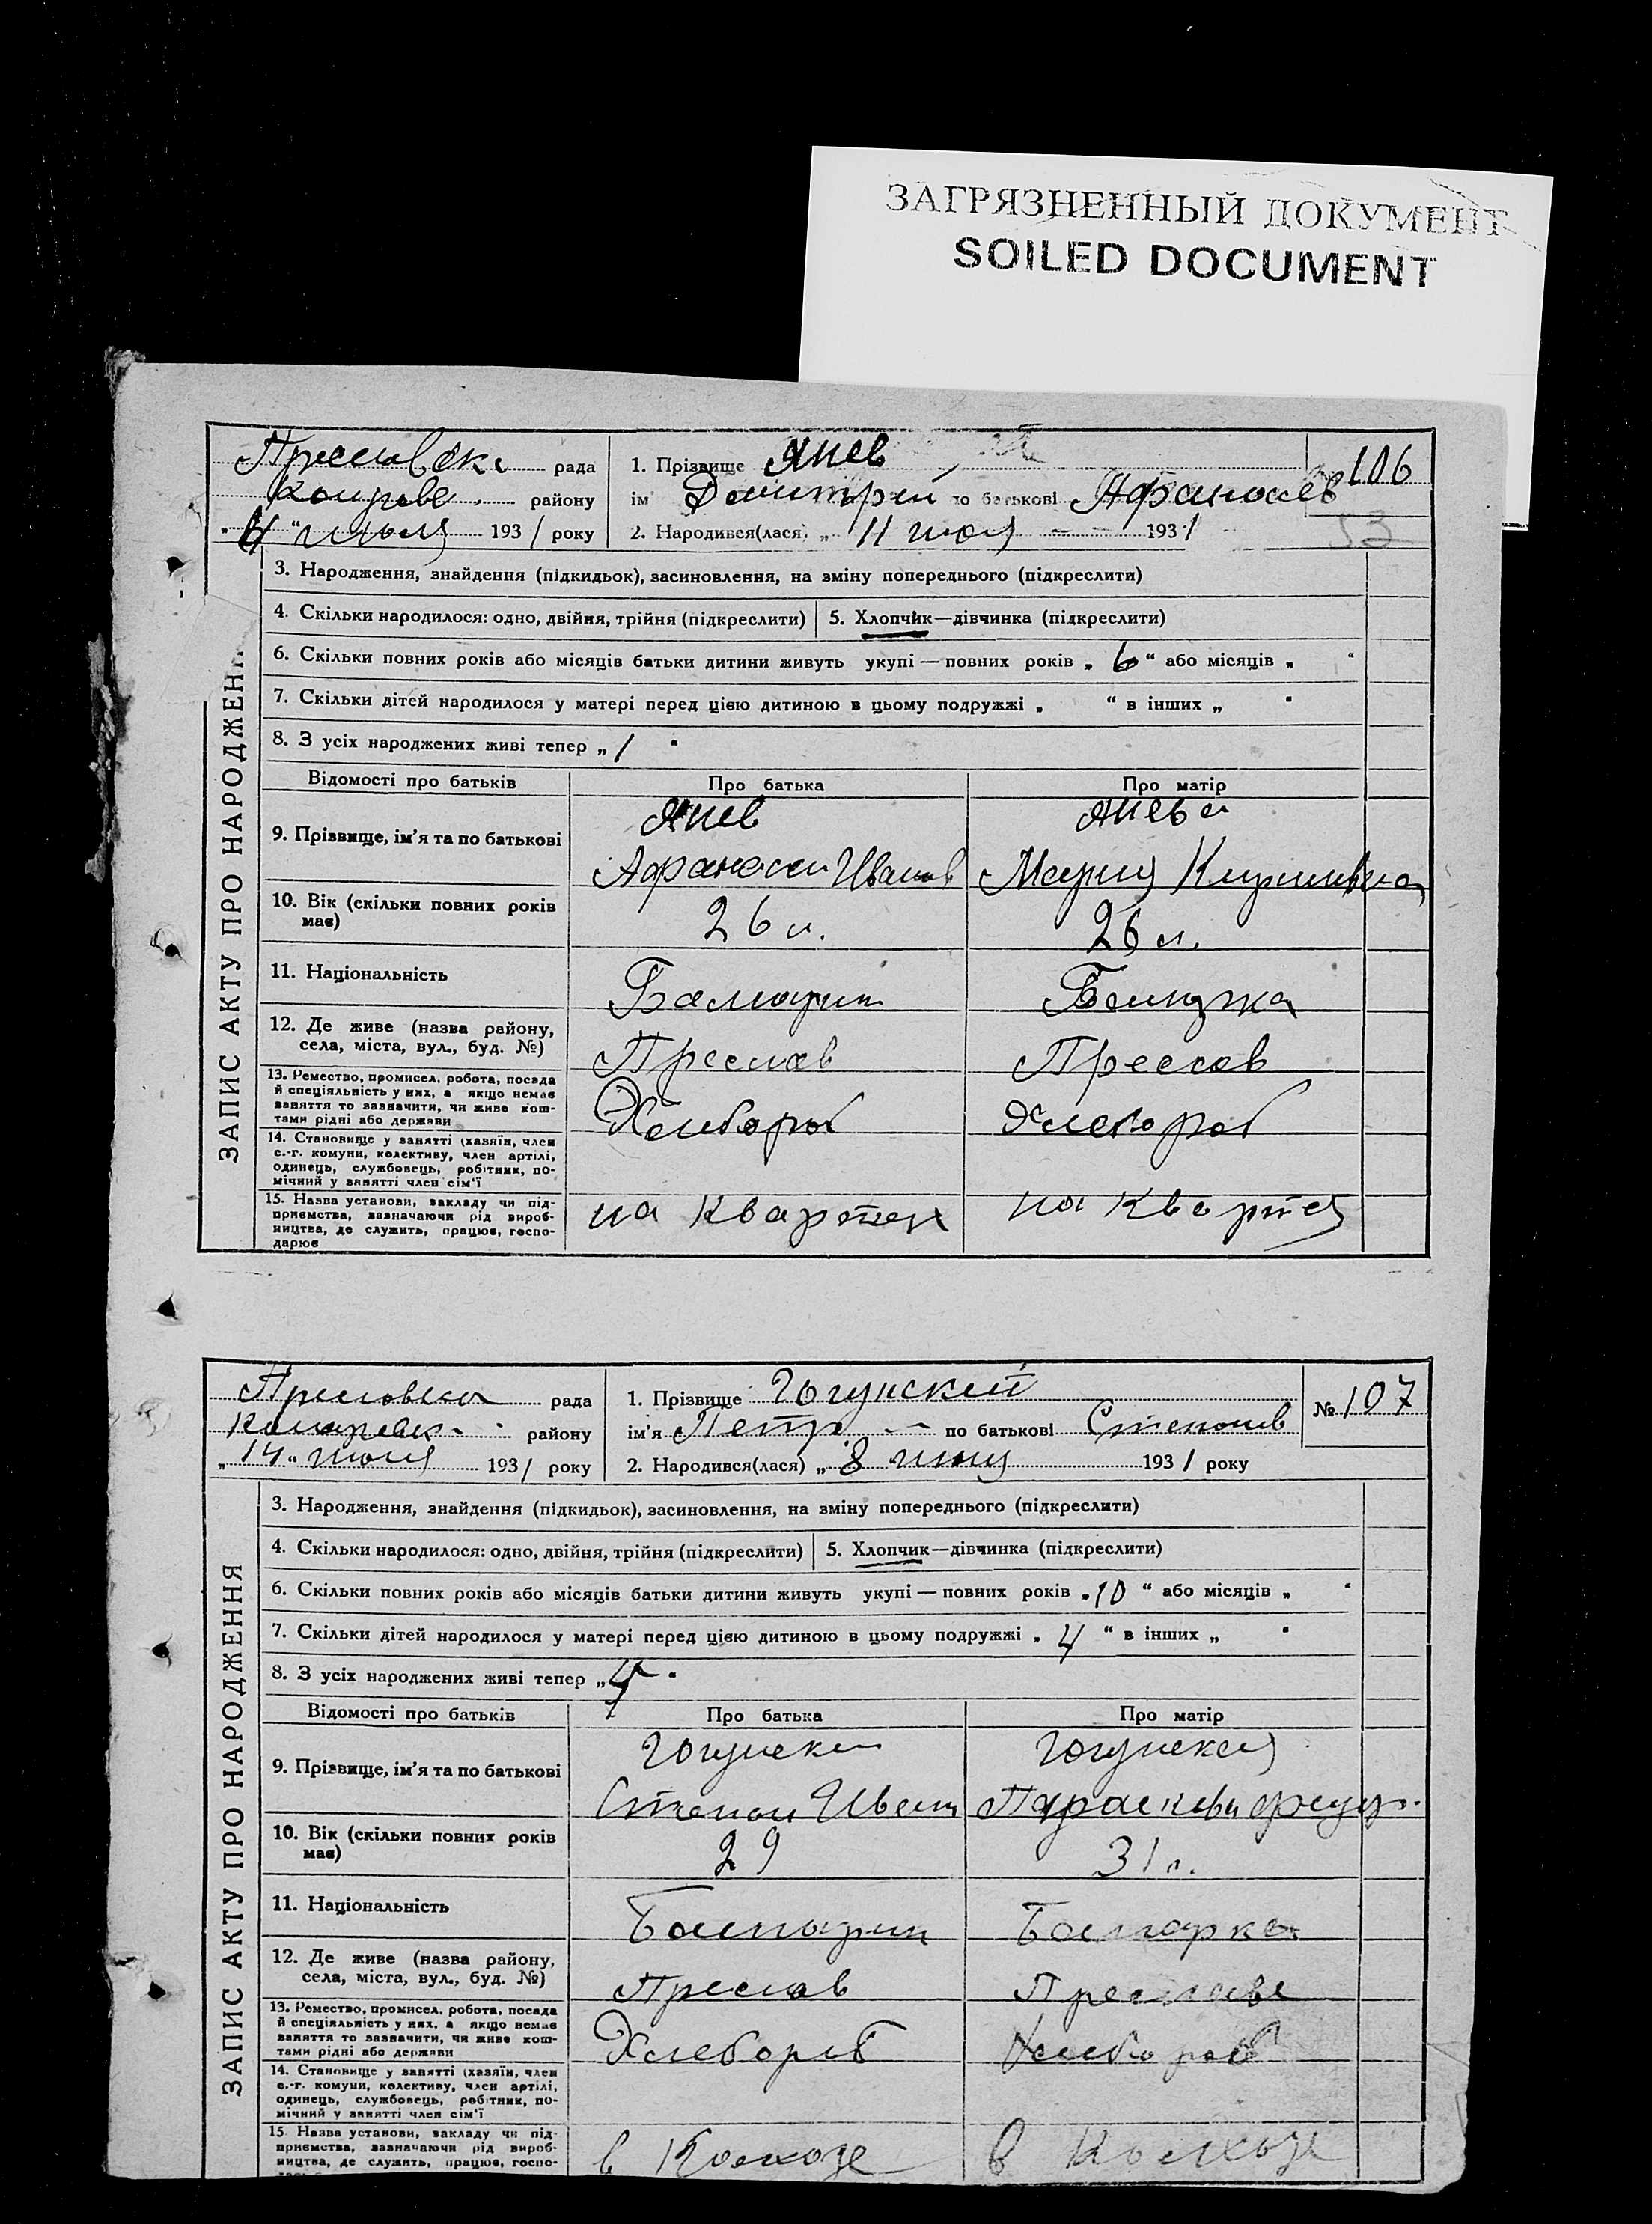 ЗАГРЯЗНЕННЫЙ ДОКУМЕНТ
SOILED DOCUMENT
рада
району
193 1 року
1. Прізвище Янев
ім Дмитрий по батькові Афанасьев
2. Народився(лася) „ 11 июля 193 1
106
53
ЗАПИС АКТУ ПРО НАРОДЖЕНН
3. Народження, знайдення (підкидьок), засиновлення, на зміну попереднього (підкреслити)
4. Скільки народилося: одно, двійня, трійня (підкреслити)
5. Хлопчик—дівчинка (підкреслити)
6. Скільки повних років або місяців батьки дитини живуть укупі — повних років „ 6 “ або місяців „ “
7. Скільки дітей народилося у матері перед цією дитиною в цьому подружжі „ “ в інших „ “
8. З усіх народжених живі тепер „ 1 “
Відомості про батьків Про батька Про матір
9. Прізвище, ім'я та по батькові
Янев
Афанасий Иванов
Янева
Мария
10. Вік (скільки повних років
має)
26 л.
26 л.
11. Національність
Балгарин
12. Де живе (назва району,
села, міста, вул., буд. №)
Преслав
Преслав
13. Ремество, промисел, робота, посада
й спеціяльність у них, а якщо немає
заняття то зазначити, чи живе кош-
тами рідні або держави
Хлебороб
Хлебороб
14. Становище у занятті (хазяїн, член
с.-г. комуни, колективу, член артілі,
одинець, службовець, робітник, по-
мічний у занятті член сім'ї
15. Назва установи, закладу чи під-
приємства, зазначаючи рід вироб-
ництва, де служить, працює, госпо-
дарює
на
на
рада
району
„ 14 “ июля 193 1 року
1. Прізвище Гогунский
ім'я Петр по батькові Степанов
2. Народився(лася) „ 8 193 1 року
№ 107
ЗАПИС АКТУ ПРО НАРОДЖЕННЯ
3. Народження, знайдення (підкидьок), засиновлення, на зміну попереднього (підкреслити)
4. Скільки народилося: одно, двійня, трійня (підкреслити)
5. Хлопчик—дівчинка (підкреслити)
6. Скільки повних років або місяців батьки дитини живуть укупі — повних років „ 10 “ або місяців „ “
7. Скільки дітей народилося у матері перед цією дитиною в цьому подружжі „ 4 “ в інших „ “
8. З усіх народжених живі тепер „
Відомості про батьків Про батька Про матір
9. Прізвище, ім'я та по батькові
Степан Иван
10. Вік (скільки повних років
має)
29
31 л.
11. Національність
Балгарин
Балгарка
12. Де живе (назва району,
села, міста, вул., буд. №)
Преслав
Преславе
13. Ремество, промисел, робота, посада
й спеціяльність у них, а якщо немає
заняття то зазначити, чи живе кош-
тами рідні або держави
Хлебороб
Хлебороб
14. Становище у занятті (хазяїн, член
с.-г. комуни, колективу, член артілі,
одинець, службовець, робітник, по-
мічний у занятті член сім'ї
15 Назва установи, закладу чи під-
приємства, зазначаючи рід вироб-
ництва, де служить, працює, госпо-
в Колхозе
в Колхозе